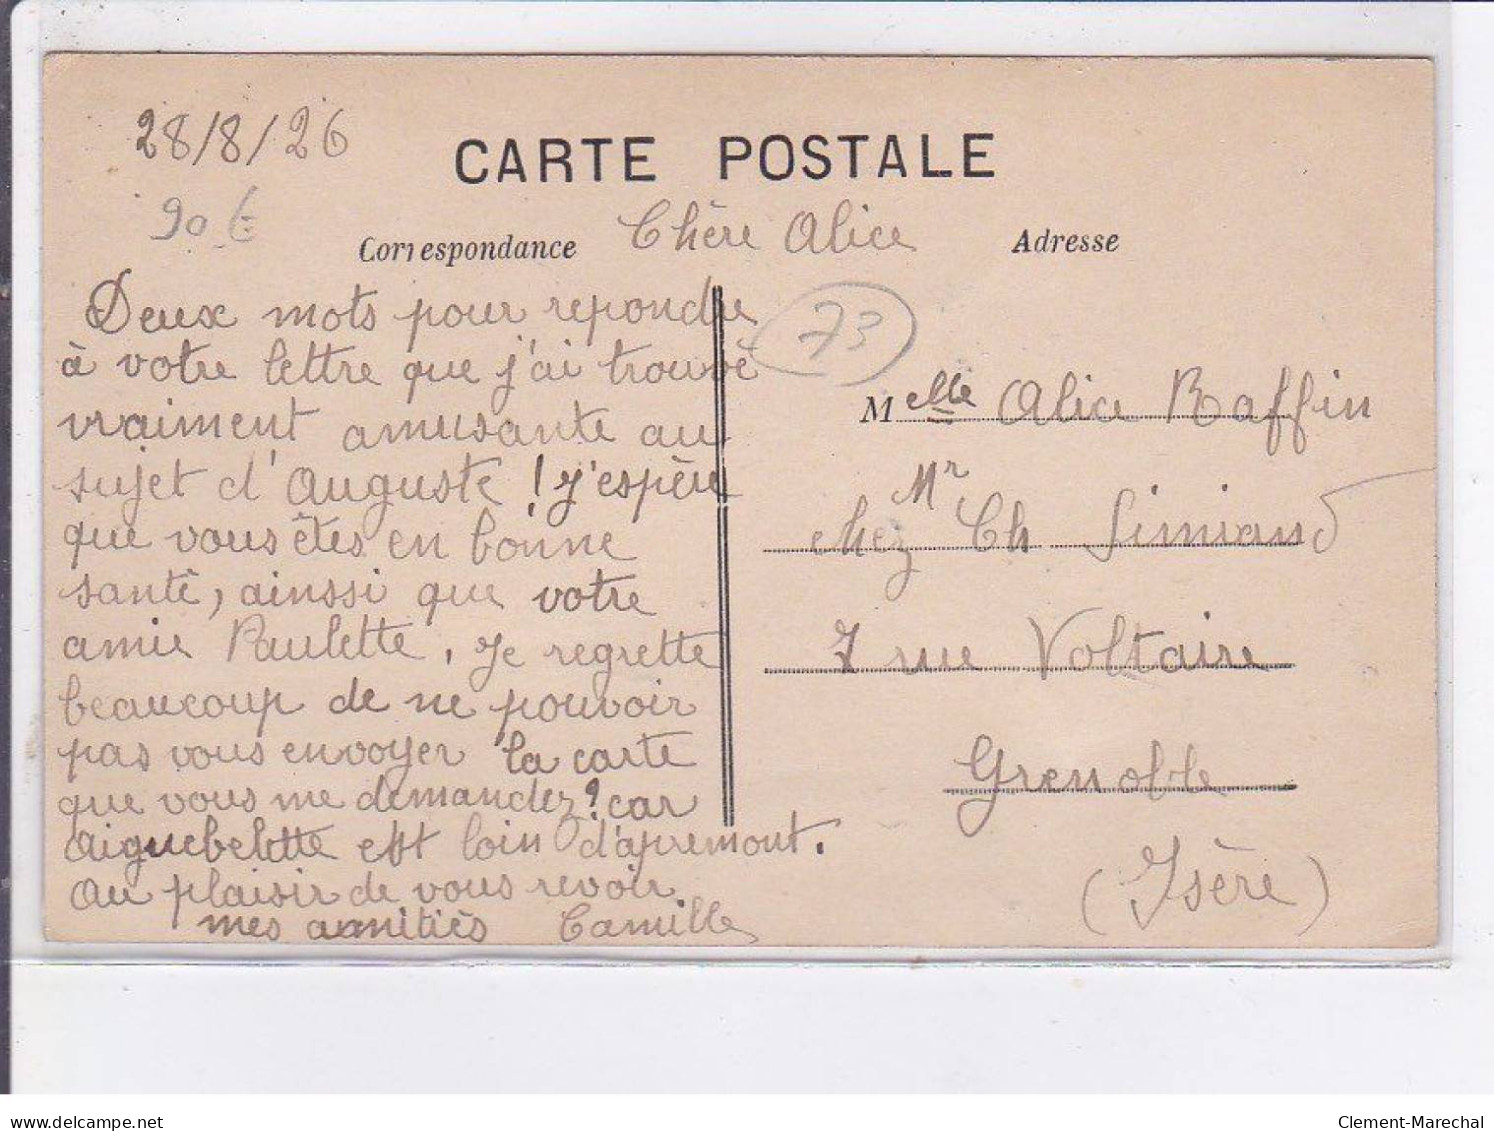 28/8/26
90 €
CARTE POSTALE
Correspondance
Chère Alice
Adresse
Deux mots pour repondre
à votre lettre que j'ai trouvé
vraiment amusante au
sujet d'Auguste ! J'espère
que vous êtes en bonne
santé, ainssi que votre
amie Paulette. Je regrette
beaucoup de ne pouvoir
pas vous envoyer la carte
que vous me demandez? car
Aiguebelette est loin d'apremont.
Au plaisir de vous revoir
mes amitiès Camille
73
Melle Alice Raffin
chez Mr Ch Simiand
7 rue Voltaire
Grenoble
(Isère)
www.delcampe.net
Clement-Marechal